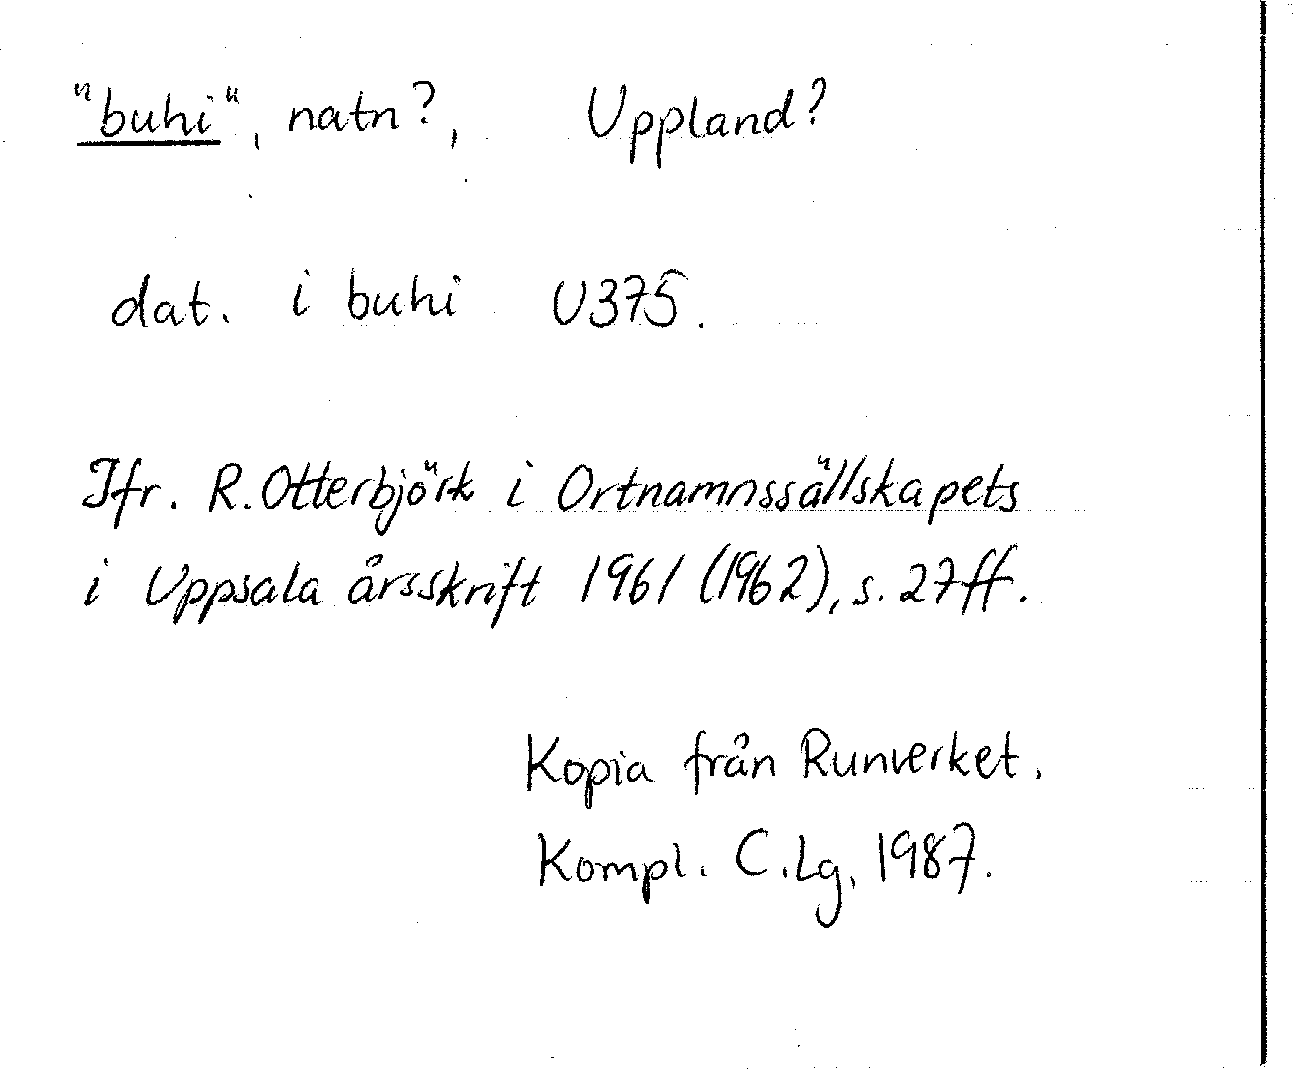 "buhi", natn?, Uppland?
dat. i buhi U375.
Jfr. R. Otterbjörk i Ortnamnssällskapets
i Uppsala årsskrift 1961 (1962), s. 27ff.
Kopia från Runverket.
Kompl. C.Lg, 1987.